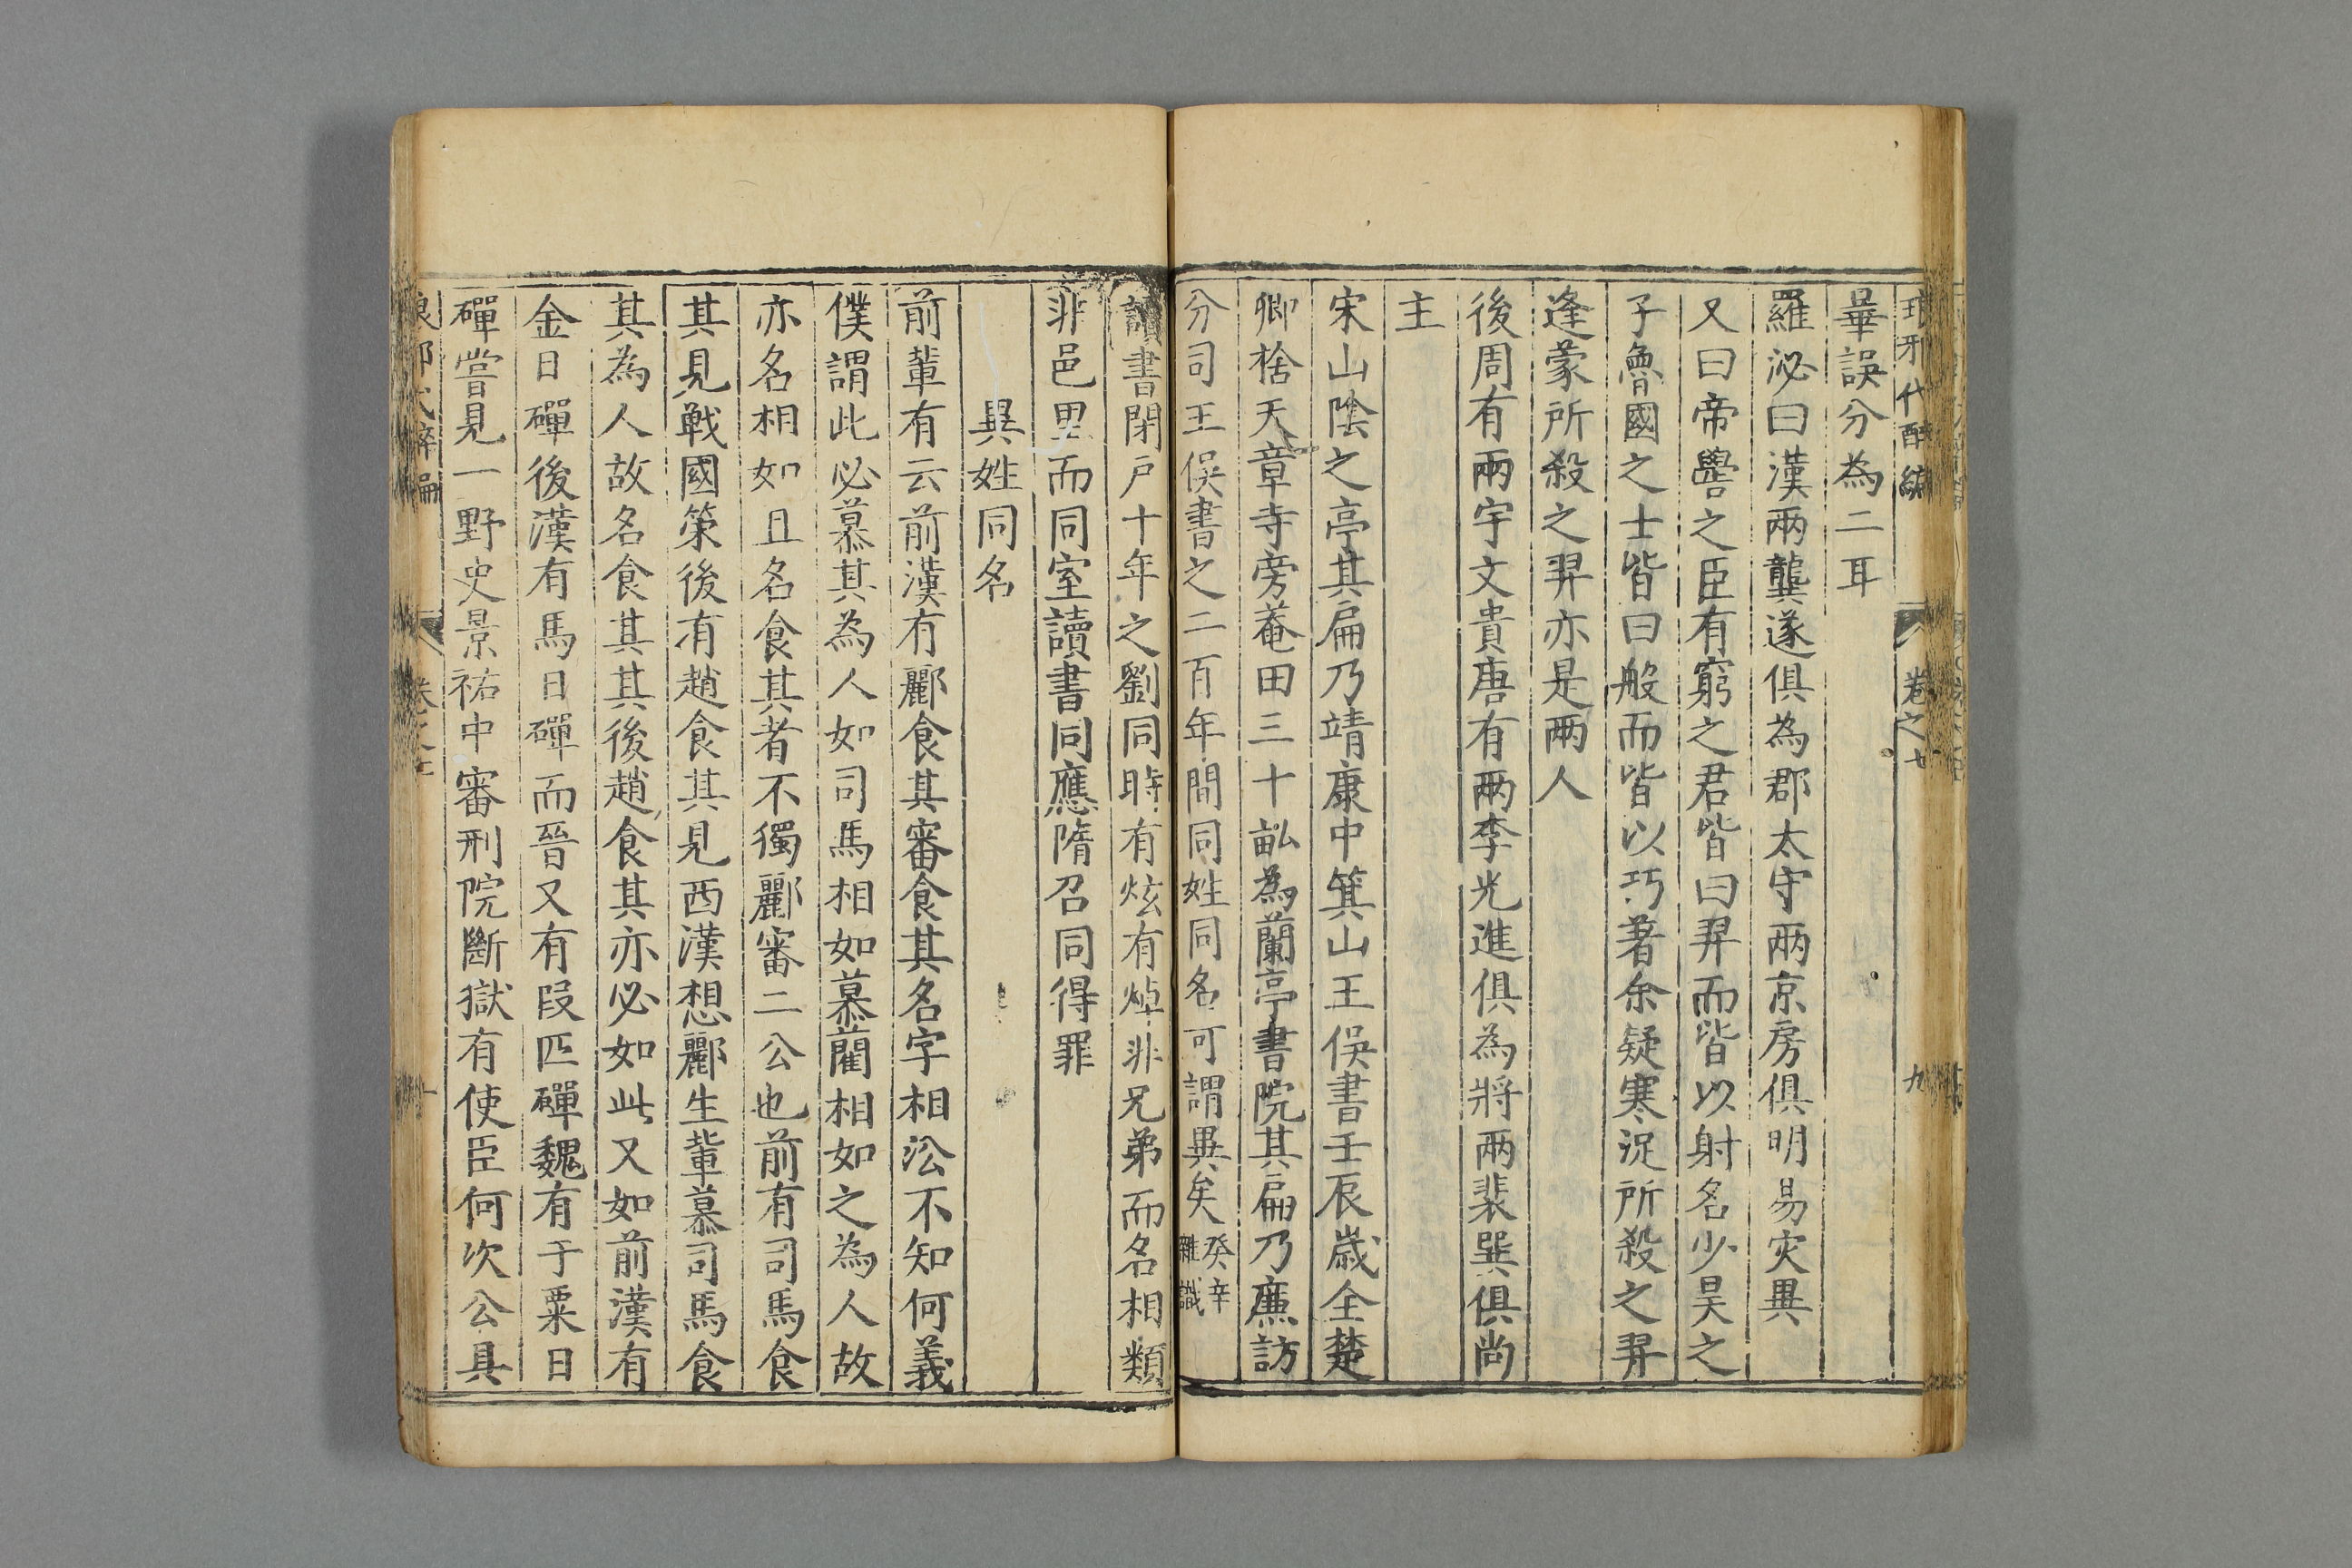 琅牙代醉編 卷之七 九
暴誤分為二耳
羅泌曰漢兩龔遂俱為郡太守兩京房俱明易灾異
又曰帝嚳之臣有窮之君皆曰羿而皆以射名少昊之
子魯國之士皆曰般而皆以巧著余疑寒浞所殺之羿
逢蒙所殺之羿亦是兩人
後周有兩宇文貴唐有兩李光進俱為將兩裴巽俱尚
主
宋山陰之亭其扁乃靖康中箕山王俁書壬辰歲全楚
卿捨天章寺旁菴田三十畝為蘭亭書院其扁乃廉訪
分司王俁書之二百年間同姓同名可謂異矣癸辛雜識
讀書閉戶十年之劉同時有炫有焯非兄弟而名相類
非邑里而同室讀書同應隋召同得罪
異姓同名
前輩有云前漢有酈食其審食其名字相沿不知何義
僕謂此必慕其為人如司馬相如慕藺相如之為人故
亦名相如且名食其者不獨酈審二公也前有司馬食
其見戰國策後有趙食其見西漢想酈生輩慕司馬食
其為人故名食其其後趙食其亦必如此又如前漢有
金日磾後漢有馬日磾而晉又有段匹磾魏有于粟日
磾嘗見一野史景祐中審刑院斷獄有使臣何次公具
卷之七